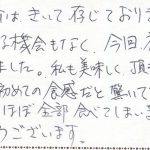 はきいて存じておりま
る機会もなく、今回
ました。私も美味しく頂
初めての食感だと驚いて
ほぼ全部食べてしまいま
うございます。